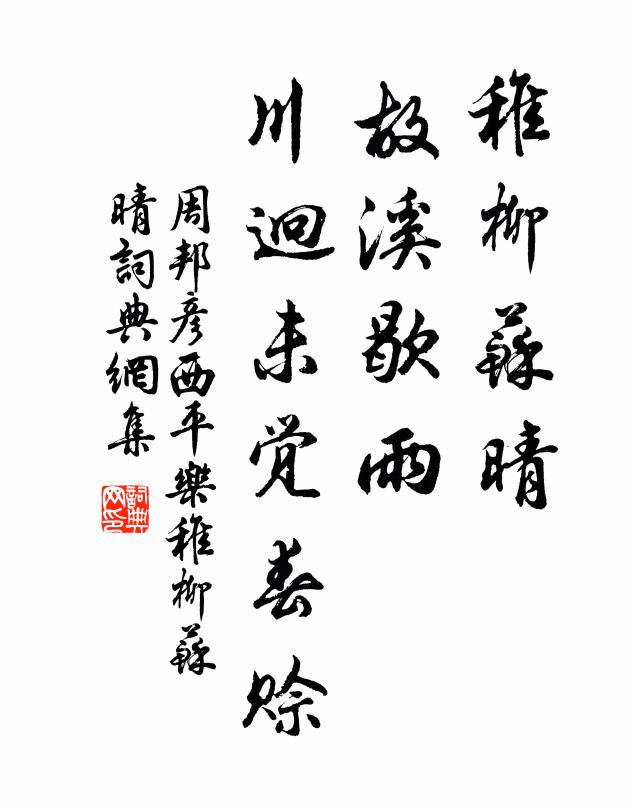 稚柳蘇晴
故溪歇雨
川迥未觉春赊
周邦彦西平樂稚柳蘇
晴詞典網集
詞典网印